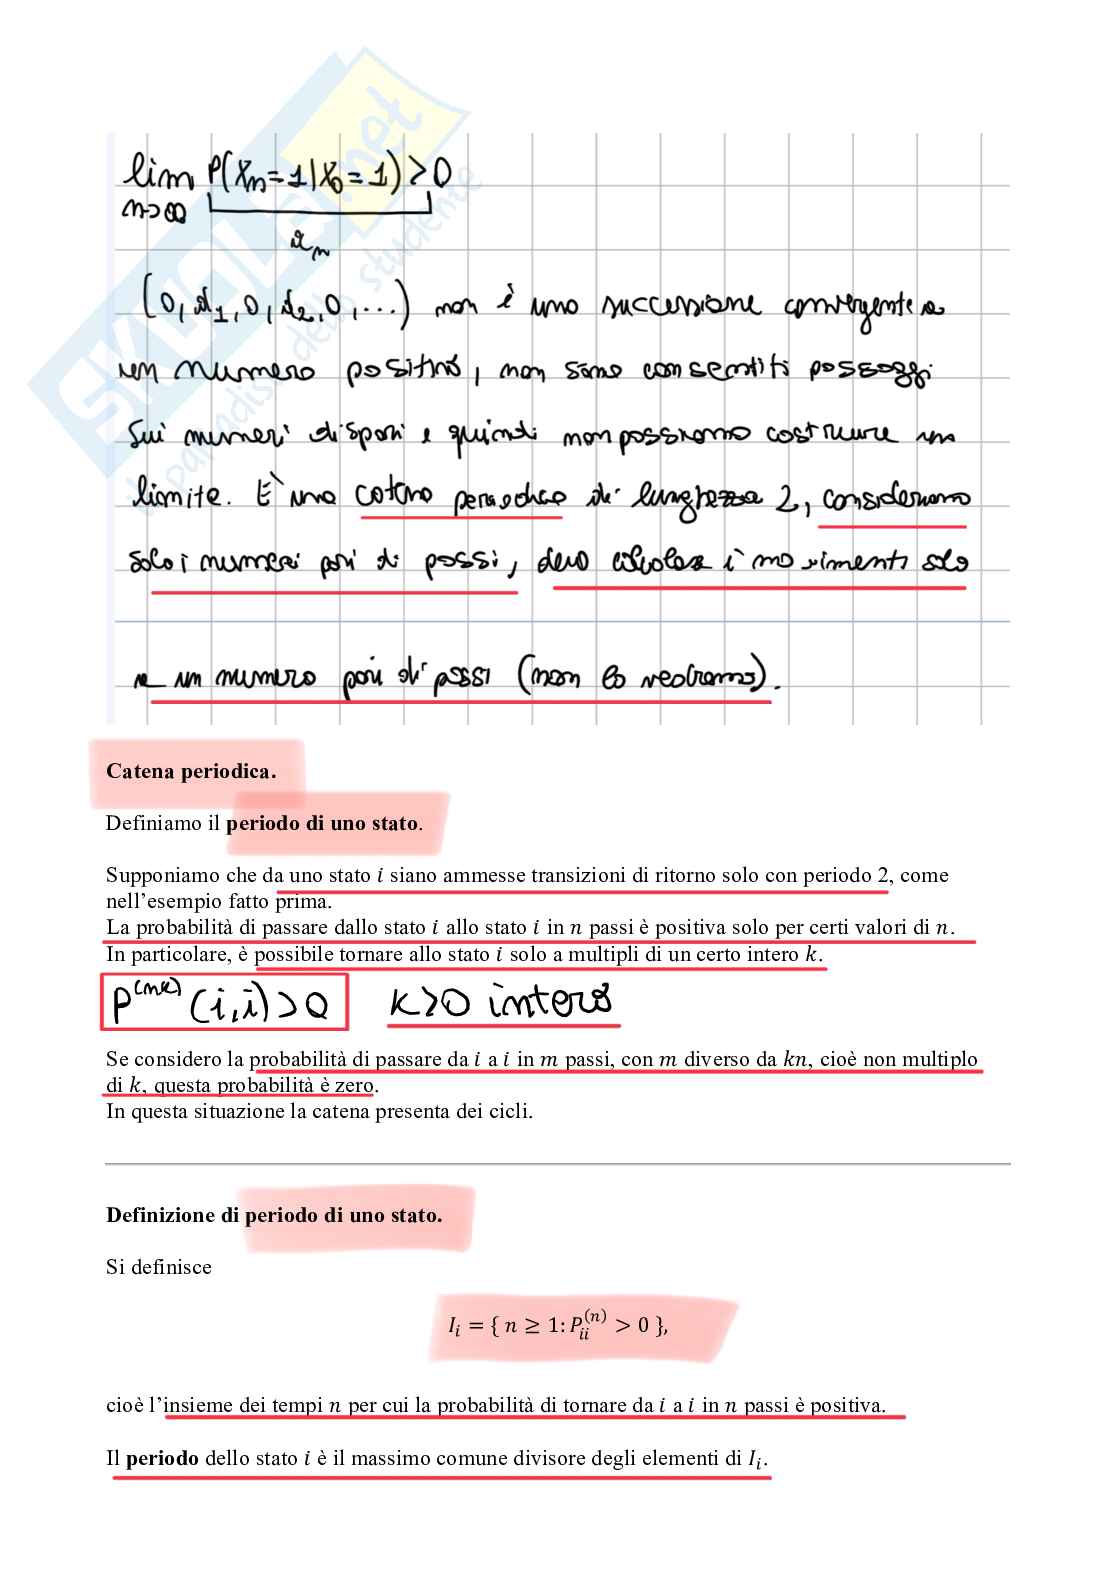 SKUOLA.net
il paradiso dello studente
lim P(Xn=1|X0=1)>0
n→∞
αn
(0, α1, 0, α2, 0, ...) non è una successione convergente a
un numero positivo, non sono consentiti passaggi
sui numeri dispari e quindi non possiamo costruire un
limite. È una catena periodica di lunghezza 2, consideriamo
solo i numeri pari di passi, devo calcolare i movimenti solo
a un numero pari di passi (non lo vedremo).
Catena periodica.
Definiamo il periodo di uno stato.
Supponiamo che da uno stato i siano ammesse transizioni di ritorno solo con periodo 2, come
nell'esempio fatto prima.
La probabilità di passare dallo stato i allo stato i in n passi è positiva solo per certi valori di n.
In particolare, è possibile tornare allo stato i solo a multipli di un certo intero k.
P^(nk) (i,i)>0 k>0 intero
Se considero la probabilità di passare da i a i in m passi, con m diverso da kn, cioè non multiplo
di k, questa probabilità è zero.
In questa situazione la catena presenta dei cicli.
Definizione di periodo di uno stato.
Si definisce
I_i = { n ≥ 1: P_ii^(n) > 0 },
cioè l'insieme dei tempi n per cui la probabilità di tornare da i a i in n passi è positiva.
Il periodo dello stato i è il massimo comune divisore degli elementi di I_i.